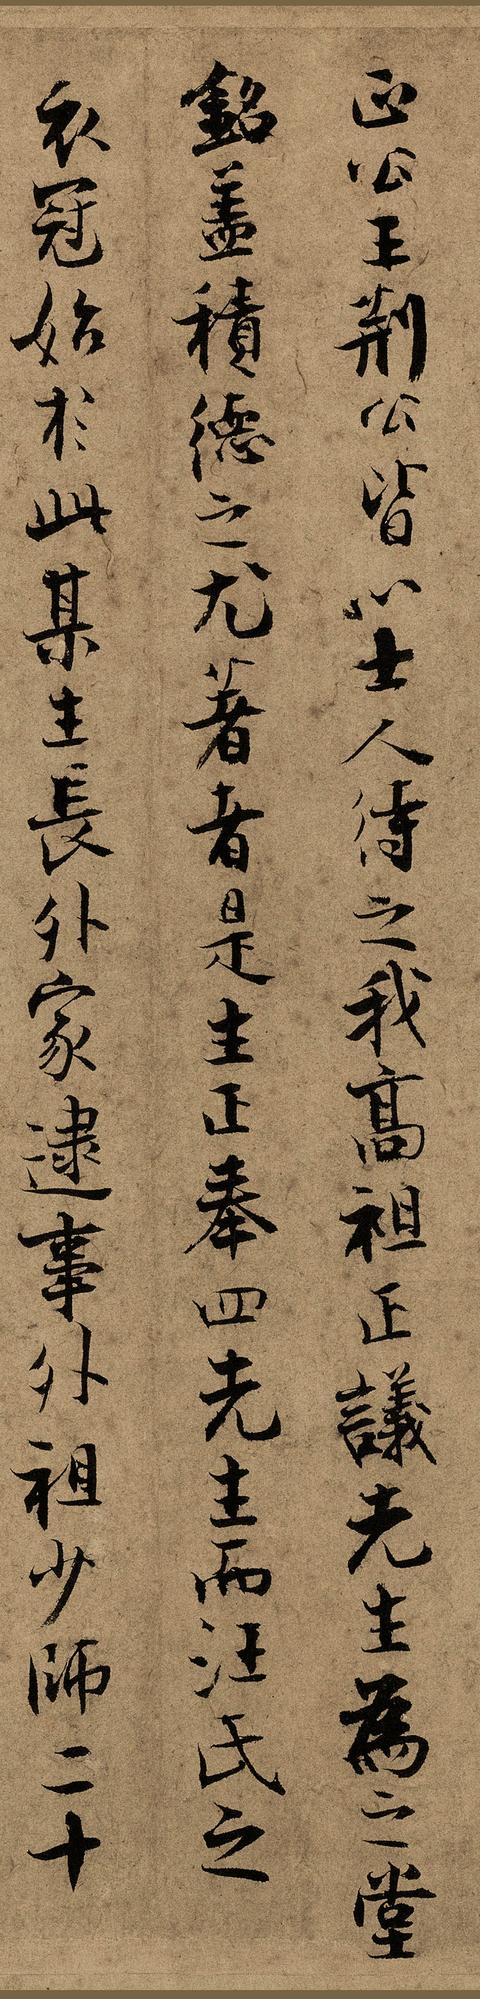 正公王荆公皆以士人待之我高祖正議先生為之堂
銘盖積德之尤著者是生正奉四先生而汪氏之
衣冠始於此某生長外家逮事外祖少師二十